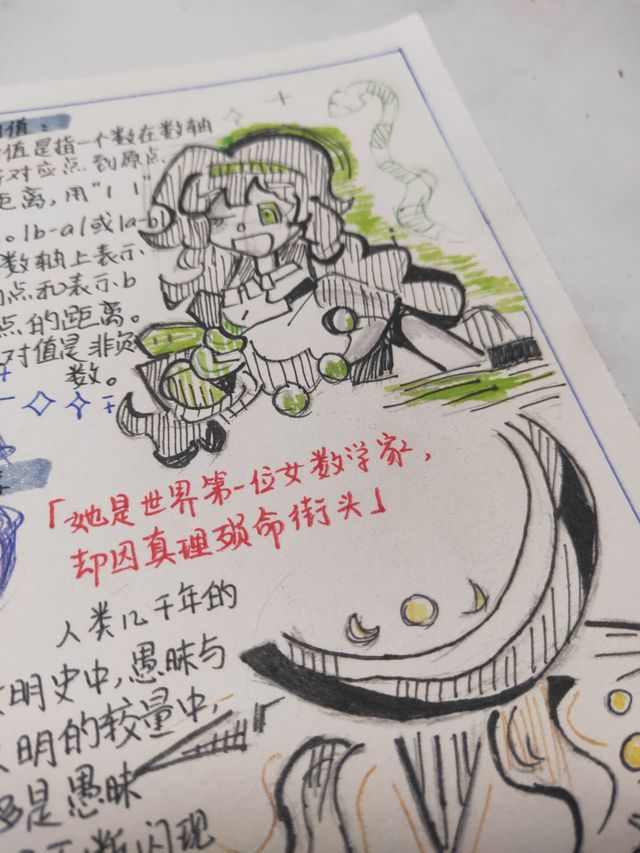 值：
值是指一个数在数轴
对应点到原点
距离，用"| |"
。|b-a|或|a-b|
数轴上表示
点和表示b
点的距离。
对值是非负
数。
「她是世界第一位女数学家，
却因真理殒命街头」
人类几千年的
文明史中，愚昧与
明的较量中，
是愚昧
闪现